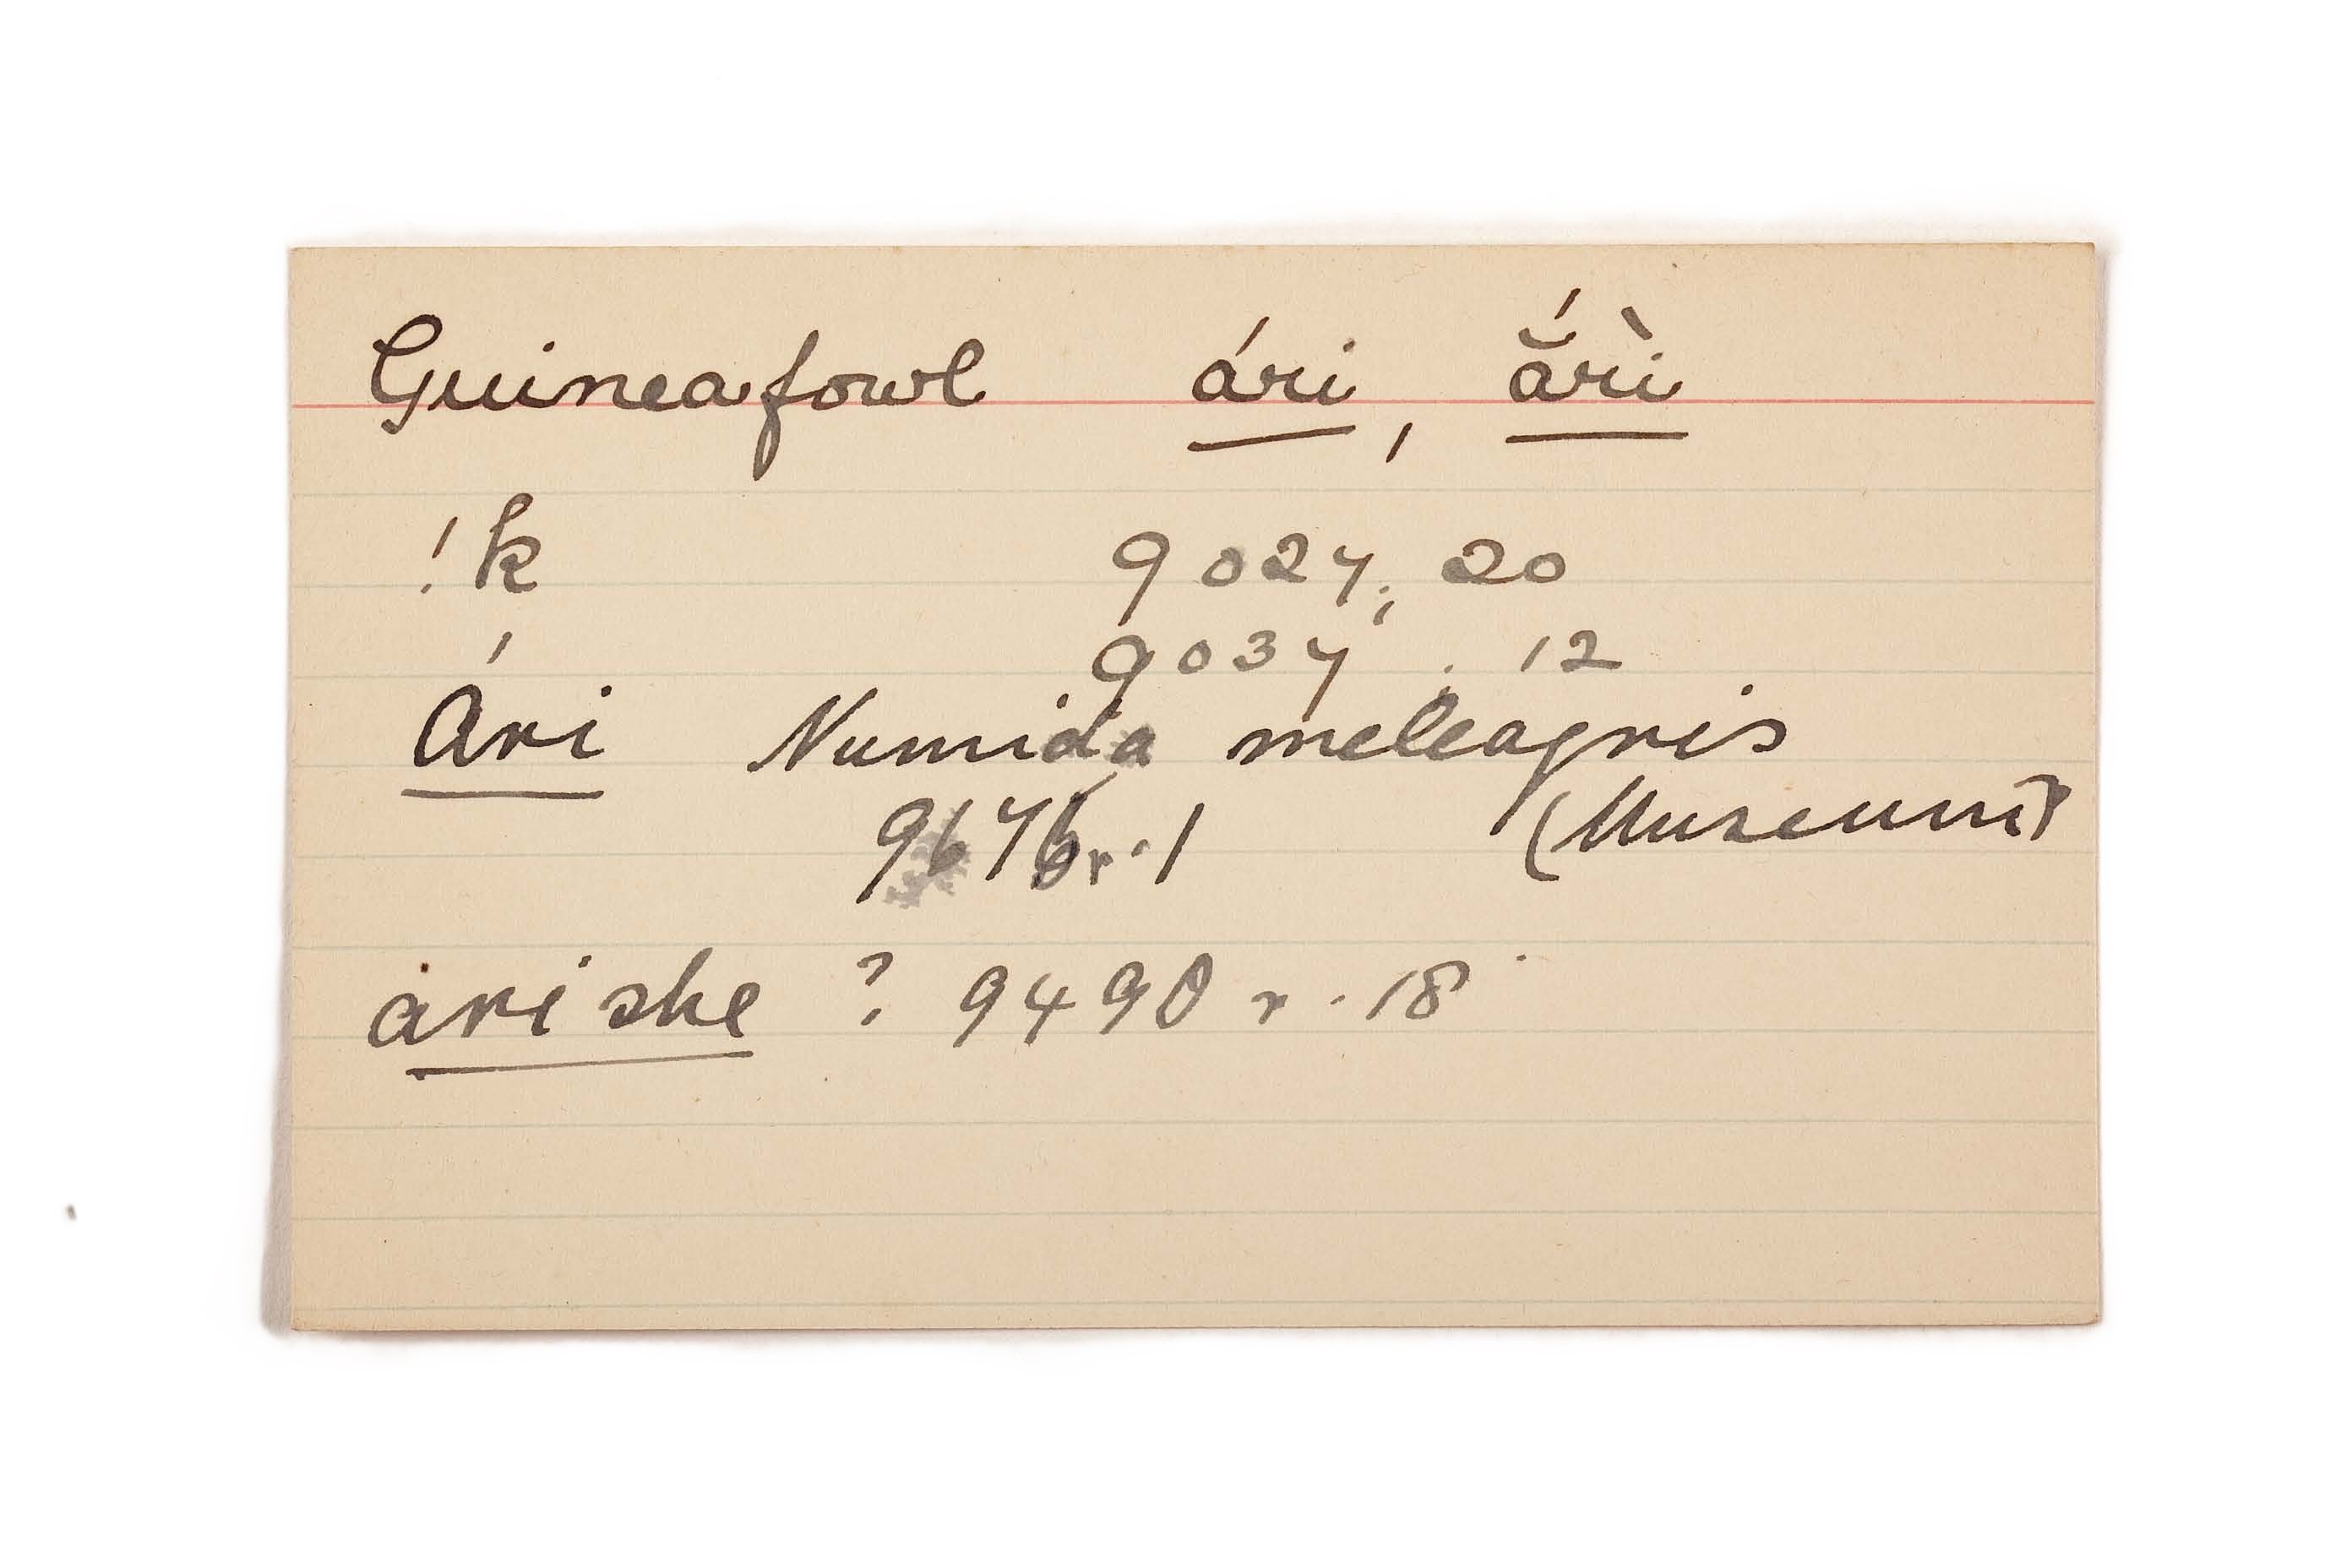 Guineafowl ári, ắrì
!k 9027, 20
9037 . 12
Ári Numida meleagris
9676r. 1 (Museum)
arishe ? 9490 r. 18